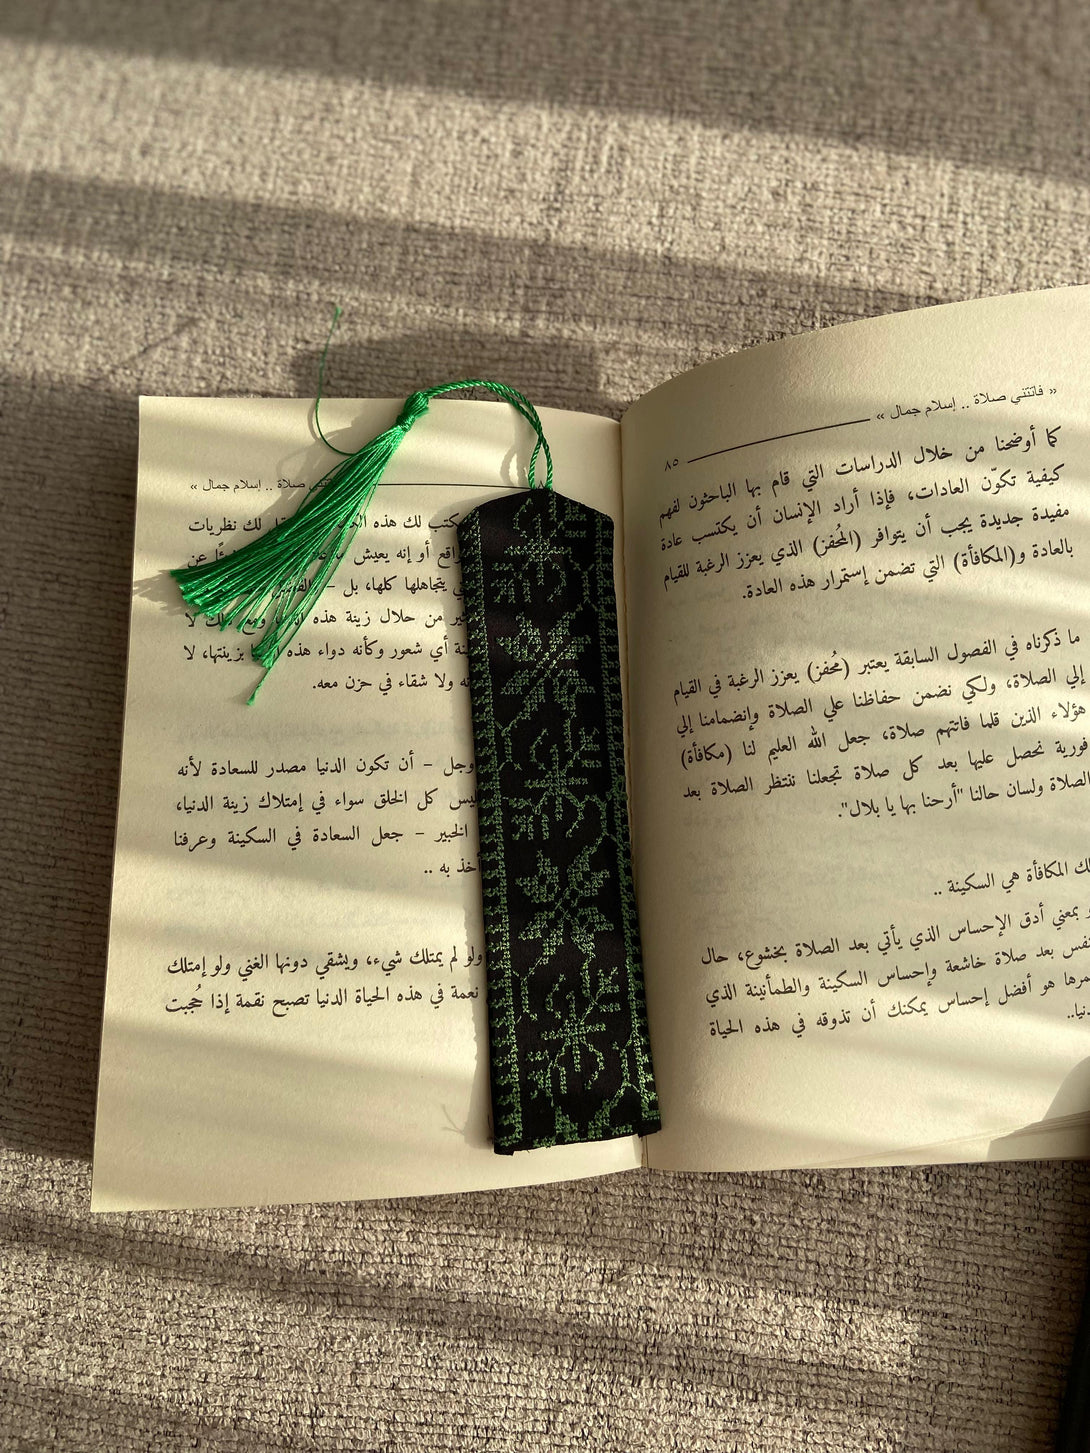 « فاتتني صلاة .. إسلام جمال »
٨٥
كما أوضحنا من خلال الدراسات التي قام بها الباحثون لفهم
كيفية تكوّن العادات، فإذا أراد الإنسان أن يكتسب عادة
مفيدة جديدة يجب أن يتوافر (المُحفز) الذي يعزز الرغبة للقيام
بالعادة و(المكافأة) التي تضمن إستمرار هذه العادة.
ما ذكرناه في الفصول السابقة يعتبر (مُحفز) يعزز الرغبة في القيام
إلي الصلاة، ولكي نضمن حفاظنا علي الصلاة وإنضمامنا إلي
هؤلاء الذين قلما فاتتهم صلاة، جعل الله العليم لنا (مكافأة)
فورية نحصل عليها بعد كل صلاة تجعلنا ننتظر الصلاة بعد
الصلاة ولسان حالنا "أرحنا بها يا بلال".
المكافأة هي السكينة ..
بمعني أدق الإحساس الذي يأتي بعد الصلاة بخشوع، حال
بعد صلاة خاشعة وإحساس السكينة والطمأنينة الذي
هو أفضل إحساس يمكنك أن تذوقه في هذه الحياة
صلاة .. إسلام جمال »
لك هذه لك نظريات
أو إنه يعيش عن
يتجاهلها كلها، بل –
من خلال زينة هذه لا
أي شعور وكأنه دواء هذه بزينتها، لا
ولا شقاء في حزن معه.
وجل – أن تكون الدنيا مصدر للسعادة لأنه
ليس كل الخلق سواء في إمتلاك زينة الدنيا،
الخبير – جعل السعادة في السكينة وعرفنا
أخذ به ..
ولو لم يمتلك شيء، ويشقي دونها الغني ولو إمتلك
نعمة في هذه الحياة الدنيا تصبح نقمة إذا حُجبت